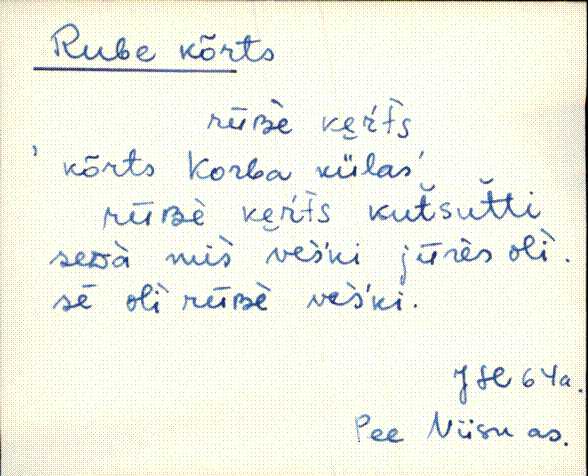 Rube kõrts
rūʙè kę̄ŕt̀s
'kõrts Korba külas'
rūʙè kę̄ŕt̀s kut̆sut̆ti
seᴅà mis̀ veš́ki jūrès olì.
sē olì rūʙè veš́ki.
64a.
Pee Niisu as.